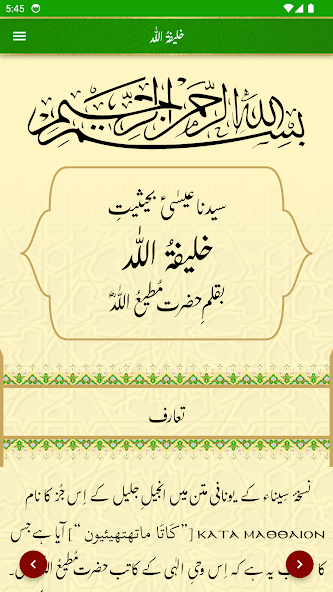 5:45
خلیفۃُ اللہ
بسم اللہ الرحمٰن الرحیم
سیدنا عیسٰیؑ بحیثیتِ
خلیفۃُ اللہ
بقلمِ حضرت مُطیعُ اللہؓ
تعارف
نسخۂ سِیناء کے یونانی متن میں انجیلِ جلیل کے اِس جُز کا نام
ΚΑΤΑ ΜΑΘΘΑΙΟΝ [”کَاتَا ماتھتھیئیون“] آیا ہے جس
یہ ہے کہ اِس وحیِ الٰہی کے کاتب حضرت مُطیعُ اللہ